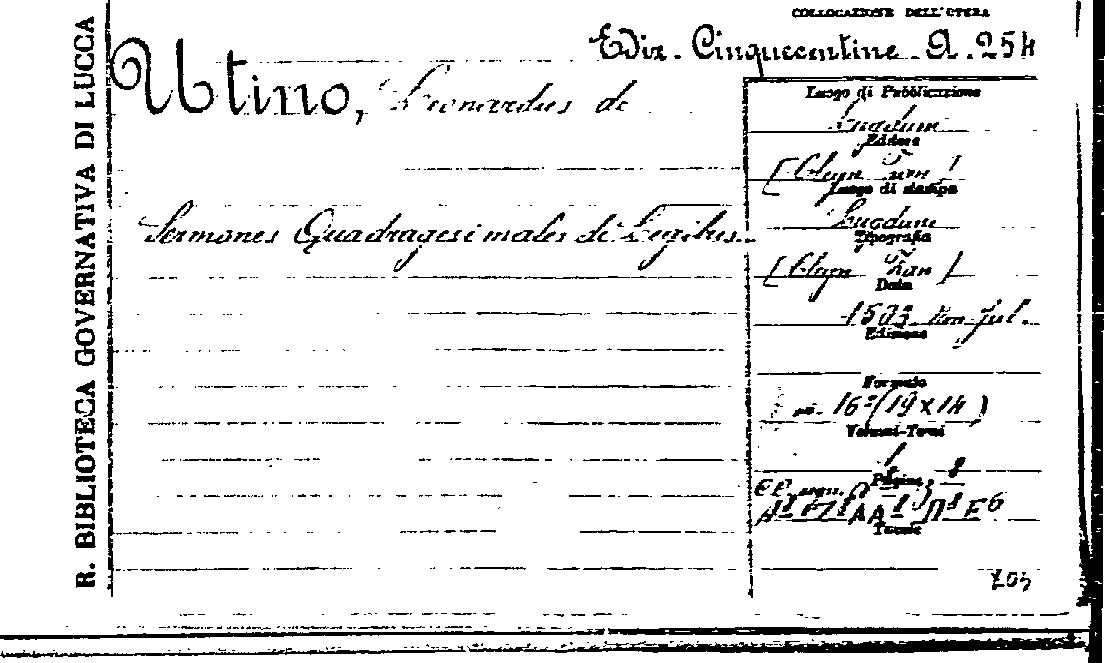 R. BIBLIOTECA GOVERNATIVA DI LUCCA
COLLOCAZIONE DELL'OPERA
Ediz. Cinquecentine A. 254
Utino, Leonardus de
Sermones Quadragesimales de Legibus
Luogo di Pubblicazione
Lugduni
Editore
Luogo di stampa
Lugduni
Tipografia
Data
1503
Edizione
Formato
16° (19 x 14)
Volumi-Tomi
1
Pagine
Tavole